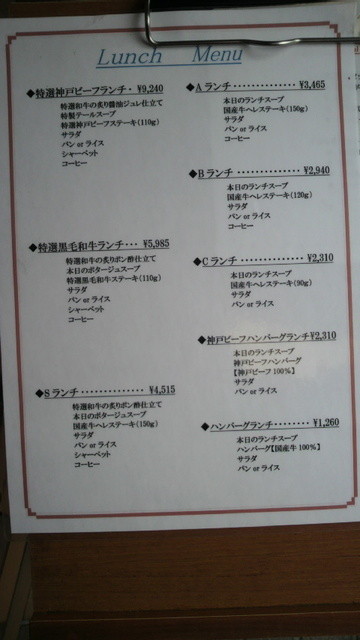 Lunch Menu
◆特選神戸ビーフランチ・ ¥9,240
特選和牛の炙り醤油ジュレ仕立て
特製テールスープ
特選神戸ビーフステーキ(110g)
サラダ
パン or ライス
シャーベット
コーヒー
◆特選黒毛和牛ランチ・・・ ¥5,985
特選和牛の炙りポン酢仕立て
本日のポタージュスープ
特選黒毛和牛ステーキ(110g)
サラダ
パン or ライス
シャーベット
コーヒー
◆Sランチ・・・・・・・・・・・・・・ ¥4,515
特選和牛の炙りポン酢仕立て
本日のポタージュスープ
国産牛ヘレステーキ(150g)
サラダ
パン or ライス
シャーベット
コーヒー
◆Aランチ・・・・・・・・・・・・・・ ¥3,465
本日のランチスープ
国産牛ヘレステーキ(150g)
サラダ
パン or ライス
コーヒー
◆Bランチ・・・・・・・・・・・・・・ ¥2,940
本日のランチスープ
国産牛ヘレステーキ(120g)
サラダ
パン or ライス
コーヒー
◆Cランチ・・・・・・・・・・・・・・ ¥2,310
本日のランチスープ
国産牛ヘレステーキ(90g)
サラダ
パン or ライス
◆神戸ビーフハンバーグランチ¥2,310
本日のランチスープ
神戸ビーフハンバーグ
【神戸ビーフ100%】
サラダ
パン or ライス
◆ハンバーグランチ・・・・・・・・ ¥1,260
本日のランチスープ
ハンバーグ【国産牛100%】
サラダ
パン or ライス